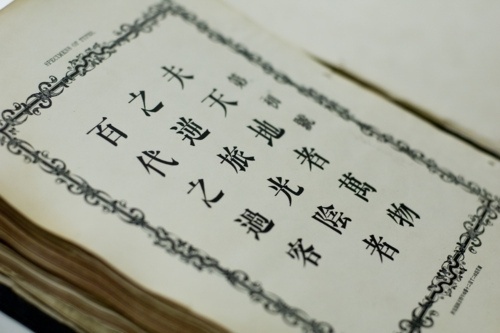 SPECIMENS OF TYPES.
夫天地者萬物
之逆旅光陰者
百代之過客